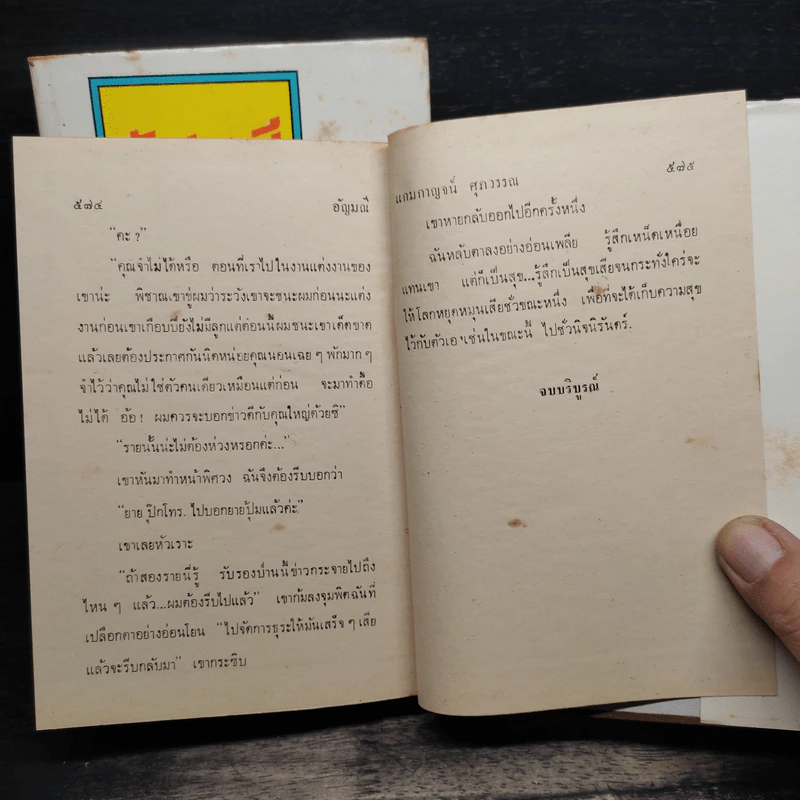 ๕๗๔
อัญมณี
"คะ ?"
"คุณจำไม่ได้หรือ ตอนที่เราไปในงานแต่งงานของ
เขาน่ะ พิชาณเขาขู่ผมว่าระวังเขาจะชนะผมก่อนนะแต่ง
งานก่อนเขาเกือบปียังไม่มีลูกแต่ตอนนี้ผมชนะเขาเด็ดขาด
แล้วเลยต้องประกาศกันนิดหน่อยคุณนอนเฉย ๆ พักมาก ๆ
จำไว้ว่าคุณไม่ใช่ตัวคนเดียวเหมือนแต่ก่อน จะมาทำดื้อ
ไม่ได้ อ้อ ! ผมควรจะบอกข่าวดีกับคุณใหญ่ด้วยซิ"
"รายนั้นน่ะไม่ต้องห่วงหรอกค่ะ..."
เขาหันมาทำหน้าพิศวง ฉันจึงต้องรีบบอกว่า
"ยาย ปุ๊กโทร. ไปบอกยายปุ้มแล้วค่ะ"
เขาเลยหัวเราะ
"ถ้าสองรายนี้รู้ รับรองป่านนี้ข่าวกระจายไปถึง
ไหน ๆ แล้ว...ผมต้องรีบไปแล้ว" เขาก้มลงจุมพิตฉันที่
เปลือกตาอย่างอ่อนโยน "ไปจัดการธุระให้มันเสร็จ ๆ เสีย
แล้วจะรีบกลับมา" เขากระซิบ
แถมกาญจน์ ศุภวรรณ
๕๗๕
เขาหายกลับออกไปอีกครั้งหนึ่ง
ฉันหลับตาลงอย่างอ่อนเพลีย รู้สึกเหน็ดเหนื่อย
แทนเขา แต่ก็เป็นสุข...รู้สึกเป็นสุขเสียจนกระทั่งใคร่จะ
ให้โลกหยุดหมุนเสียชั่วขณะหนึ่ง เพื่อที่จะได้เก็บความสุข
ไว้กับตัวเอ เช่นในขณะนี้ ไปชั่วนิจนิรันดร์.
จบบริบูรณ์